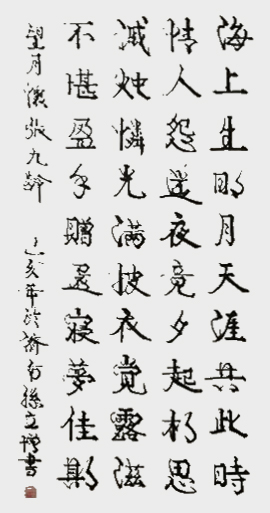 海上生明月天涯共此時
情人怨遥夜竟夕起相思
滅烛憐光滿披衣覺露滋
不堪盈手贈還寢夢佳期
望月懷張九齡 亥年於濟南孫立增書